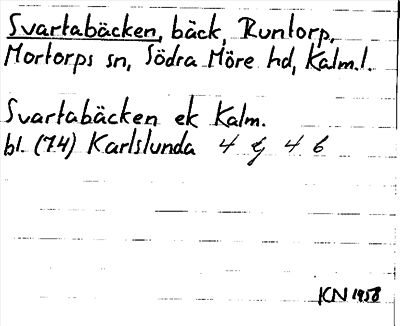 Svartabäcken, bäck, Runtorp,
Mortorps sn, Södra Möre hd, Kalm.l.
Svartabäcken ek Kalm.
bl. (74) Karlslunda 4 g 4 b
KN 1958